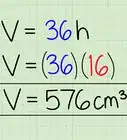 V = 36h
V = (36)(16)
V = 576cm³